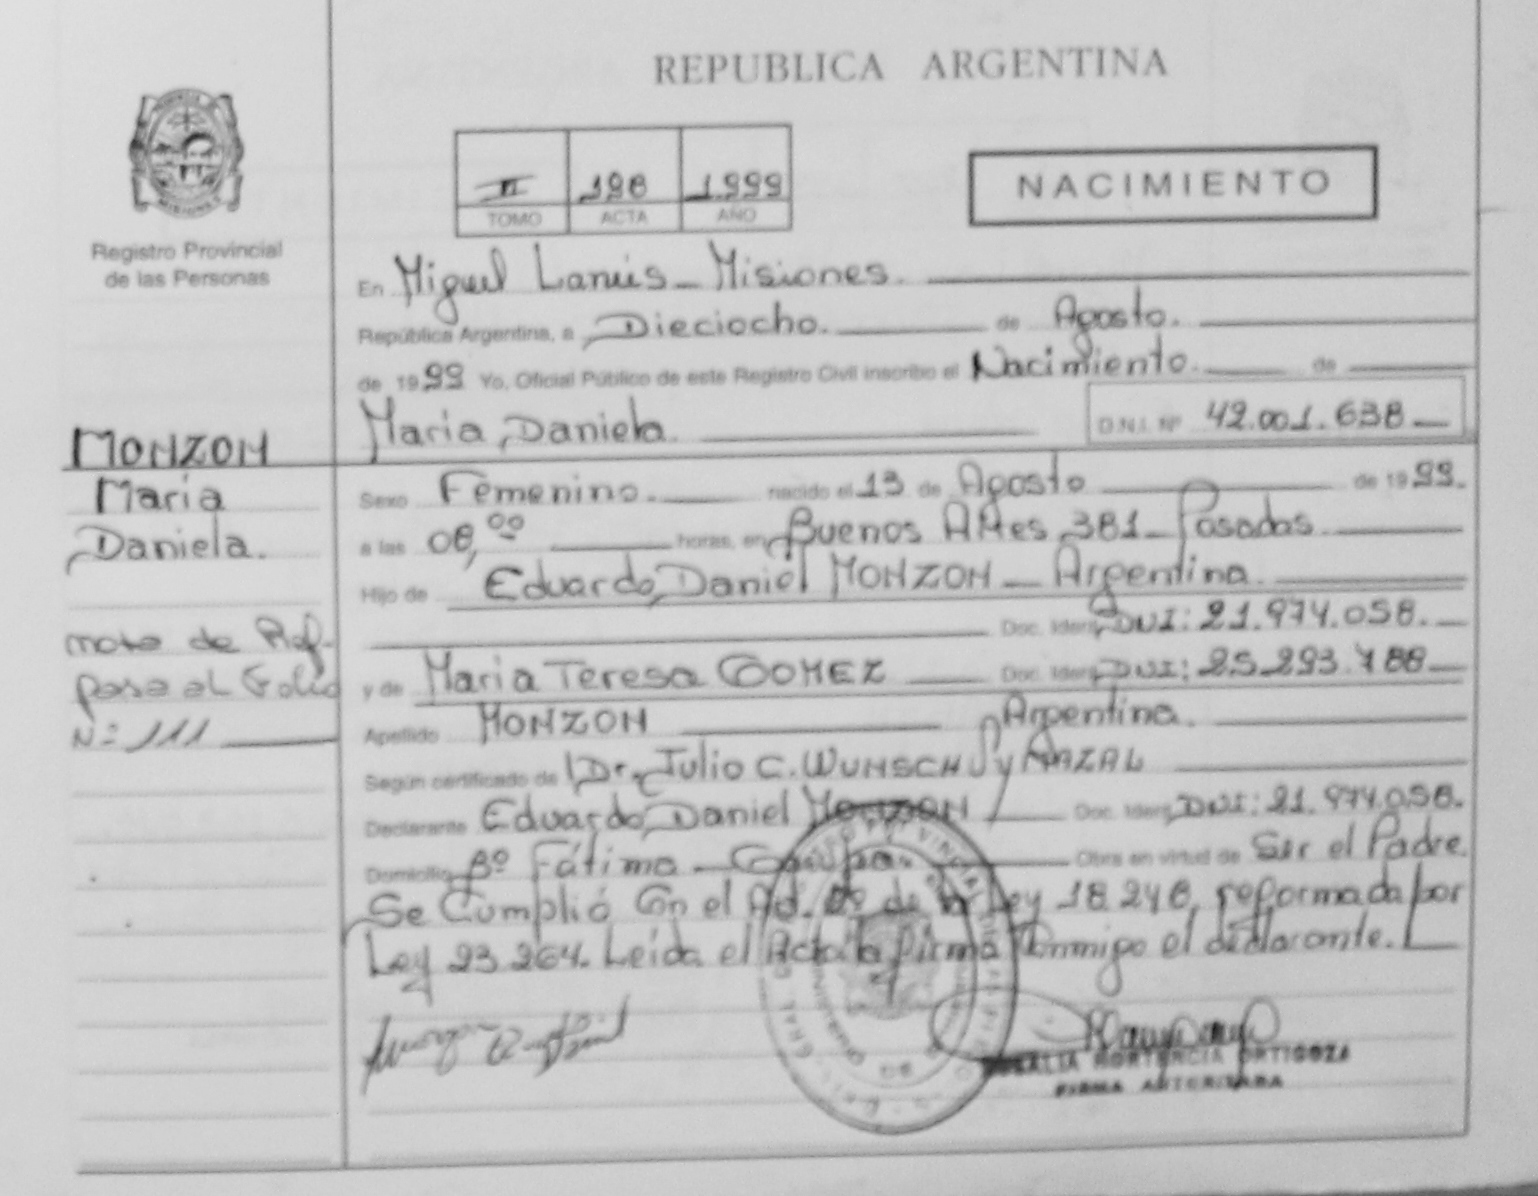 REPUBLICA ARGENTINA
Registro Provincial
de las Personas
II 198 1.999
TOMO ACTA AÑO
NACIMIENTO
En Miguel Lanús - Misiones.
República Argentina, a Dieciocho. de Agosto.
de 1999 Yo, Oficial Público de este Registro Civil inscribo el Nacimiento. de
Maria Daniela. D.N.I. Nº 42.001.638
MONZON
Maria
Daniela.
Sexo Femenino. nacido el 13 de Agosto de 1999.
a las 08,00 horas, en Buenos Aires 381 - Posadas.
Hijo de Eduardo Daniel MONZON - Argentina.
Doc. Ident. DNI: 21.974.058.
y de Maria Teresa GOMEZ Doc. Ident. DNI: 25.293.788
Apellido MONZON Argentina.
Según certificado de Dr. Julio C. WUNSCH y
Declarante Eduardo Daniel MONZON Doc. Ident. DNI: 21.974.058.
Domicilio Bº Fátima - Obra en virtud de Ser el Padre.
Se Cumplió Con el Ley 18.248, reformada por
Ley 23.264. Leida el Acta la firma Conmigo el declarante.
nota de Ref.
pasa al Folio
Nº 111
HORTENCIA ORTIGOZA
FIRMA AUTORIZADA